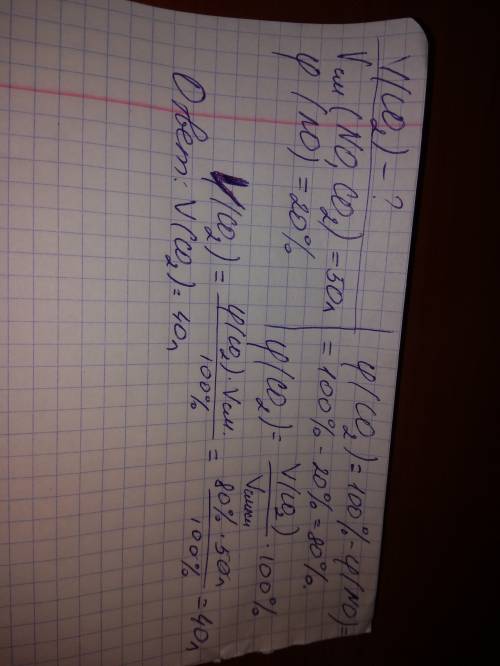 V(CO₂) - ?
Vсм (NO, CO₂) = 50л
φ (NO) = 20%
φ(CO₂) = 100% - φ(NO) =
= 100% - 20% = 80%.
φ(CO₂) = V(CO₂) / Vсмеси · 100%
V(CO₂) = φ(CO₂) · Vсм. / 100% = 80% · 50л / 100% = 40л
Ответ: V(CO₂) = 40л